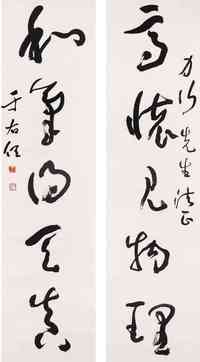 力行先生法正
高懷見物理
和氣得天真
于右任